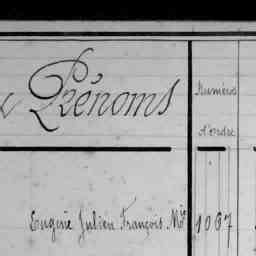 Prénoms
Numéros
d'ordre
Eugène Julien François Mie 1067